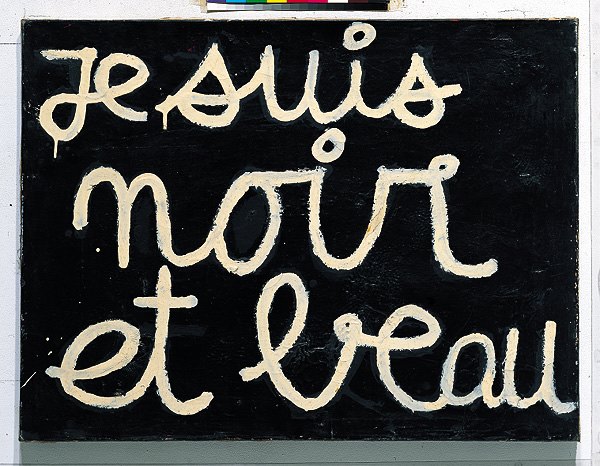 Je suis
noir
et beau